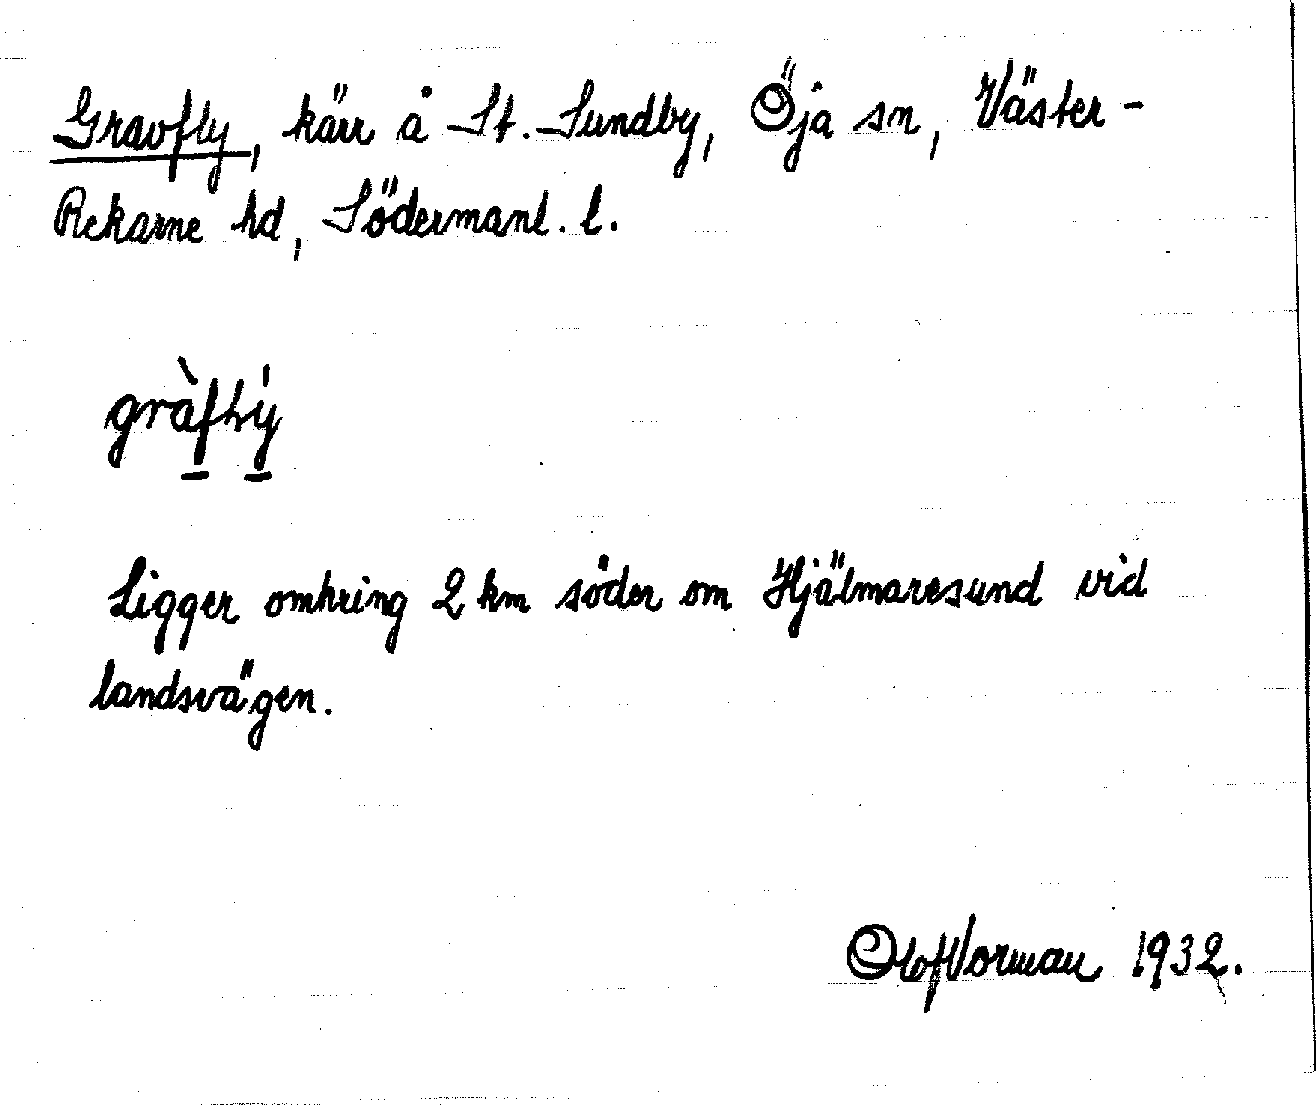 Gravfly, kärr å St. Sundby, Öja sn, Väster-
Rekarne hd, Södermanl. l.
gràflý
Ligger omkring 2 km söder om Hjälmaresund vid
landsvägen.
Olof Norman 1932.